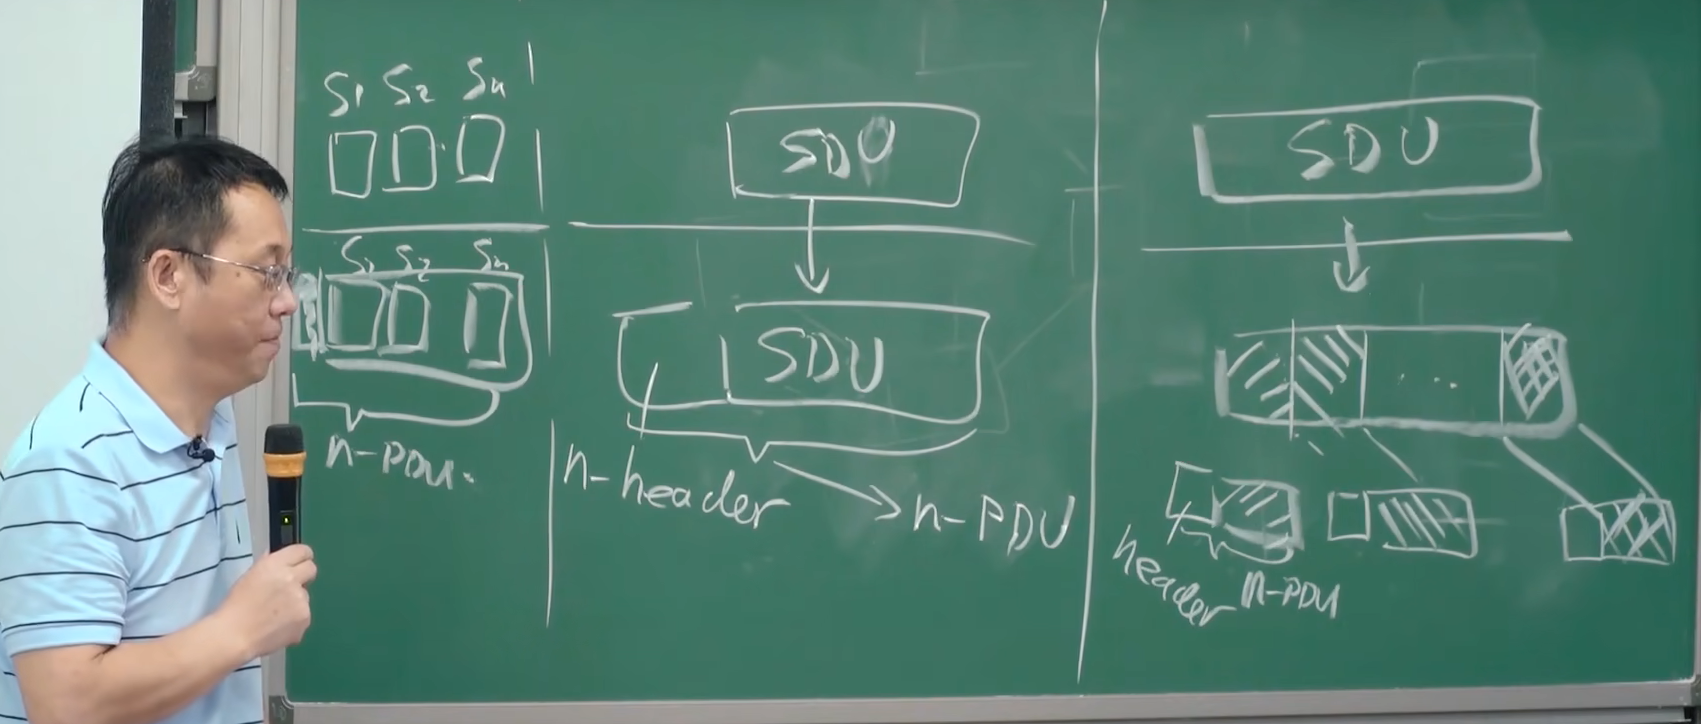 S1 S2 Sn
S1 S2 Sn
n-PDU.
SDU
SDU
n-header
n-PDU
SDU
...
header
n-PDU